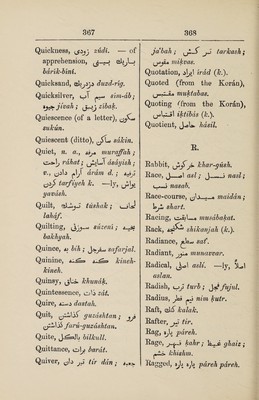 367
Quickness, زودی zúdí. — of
apprehension, باریک بینی
bárík-bíní.
Quicksand, دزدریگ duzd-ríg.
Quicksilver, سیم آب sím-áb;
جیوه jívah; زیبق zíbaḳ.
Quiescence (of a letter), سکون
sukún.
Quiescent (ditto), ساکن sákin.
Quiet, n. a., مرفه muraffah;
راحت ráhat; آسایش ásáyish;
v., آرام دادن árám d.; ترفیه
کردن tarfíyeh k. —ly, یواش
yavásh.
Quilt, توشک túshak; لحاف
laháf.
Quilting, سوزنی súzaní; بخیه
bakhyah.
Quince, به bih; سفرجل safarjal.
Quinine, کنه کنه kineh-
kineh.
Quinsy, خناق khunáḳ.
Quintessence, ذات zát.
Quire, دسته dastah.
Quit, گذاشتن guzáshtan; فرو
گذاشتن furú-guzáshtan.
Quite, بالکل bilkull.
Quittance, برات barát.
Quiver, تیر دان tír dán; جعبه
368
ja'bah; ترکش tarkash;
مقوس miḳvas.
Quotation, ایراد írád (k.).
Quoted (from the Korán),
مقتبس muḳtabas.
Quoting (from the Korán),
اقتباس iḳtibás (k.).
Quotient, حاصل hásil.
R.
Rabbit, خرگوش khar-gúsh.
Race, اصل asl; نسل nasl;
نسب nasab.
Race-course, میدان maidán;
شرط shart.
Racing, مسابقت musábaḳat.
Rack, شکنجه shikanjah (k.).
Radiance, صفا saf.
Radiant, منور munavvar.
Radical, اصلی aslí. —ly, اصلا
aslan.
Radish, ترب turb; فجل fujul.
Radius, نیم قطر nim ḳutr.
Raft, کلک kalak.
Rafter, تیر tír.
Rag, پاره páreh.
Rage, قهر ḳahr; غیظ ghaiz;
خشم khishm.
Ragged, پاره پاره páreh páreh.